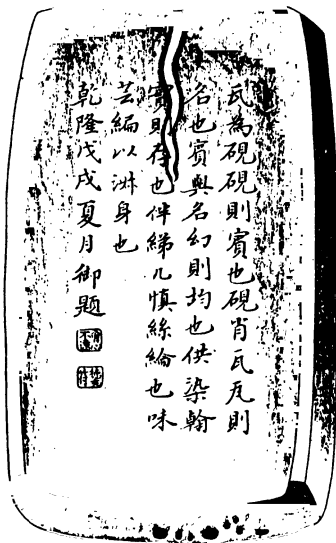 瓦為硯硯則賓也硯肖瓦瓦則
名也賓與名幻則均也供染翰
實則存也伴綈几慎絲綸也味
芸編以淑身也
乾隆戊戌夏月御題